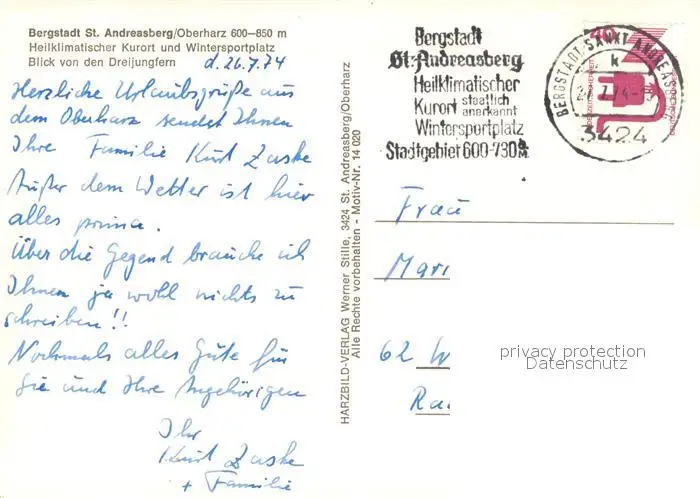 Bergstadt St. Andreasberg/Oberharz 600—850 m
Heilklimatischer Kurort und Wintersportplatz
Blick von den Dreijungfern
d. 26.7.74
Herzliche Urlaubsgrüße aus
dem Oberharz sendet Ihnen
Ihre Familie Kurt Zaske
Außer dem Wetter ist hier
alles prima.
Über die Gegend brauche ich
Ihnen ja wohl nichts zu
schreiben!!
Nochmals alles Gute für
Sie und Ihre Angehörigen
Ihr
Kurt Zaske
+ Familie
HARZBILD-VERLAG Werner Stille, 3424 St. Andreasberg/Oberharz
Alle Rechte vorbehalten - Motiv-Nr. 14 020
Bergstadt
St. Andreasberg
Heilklimatischer
Kurort staatlich anerkannt
Wintersportplatz
Stadtgebiet 600-730 ü.M.
BERGSTADT SANKT ANDREASBERG
k
3424
40
Frau
Mari
62 W
Ra
privacy protection
Datenschutz